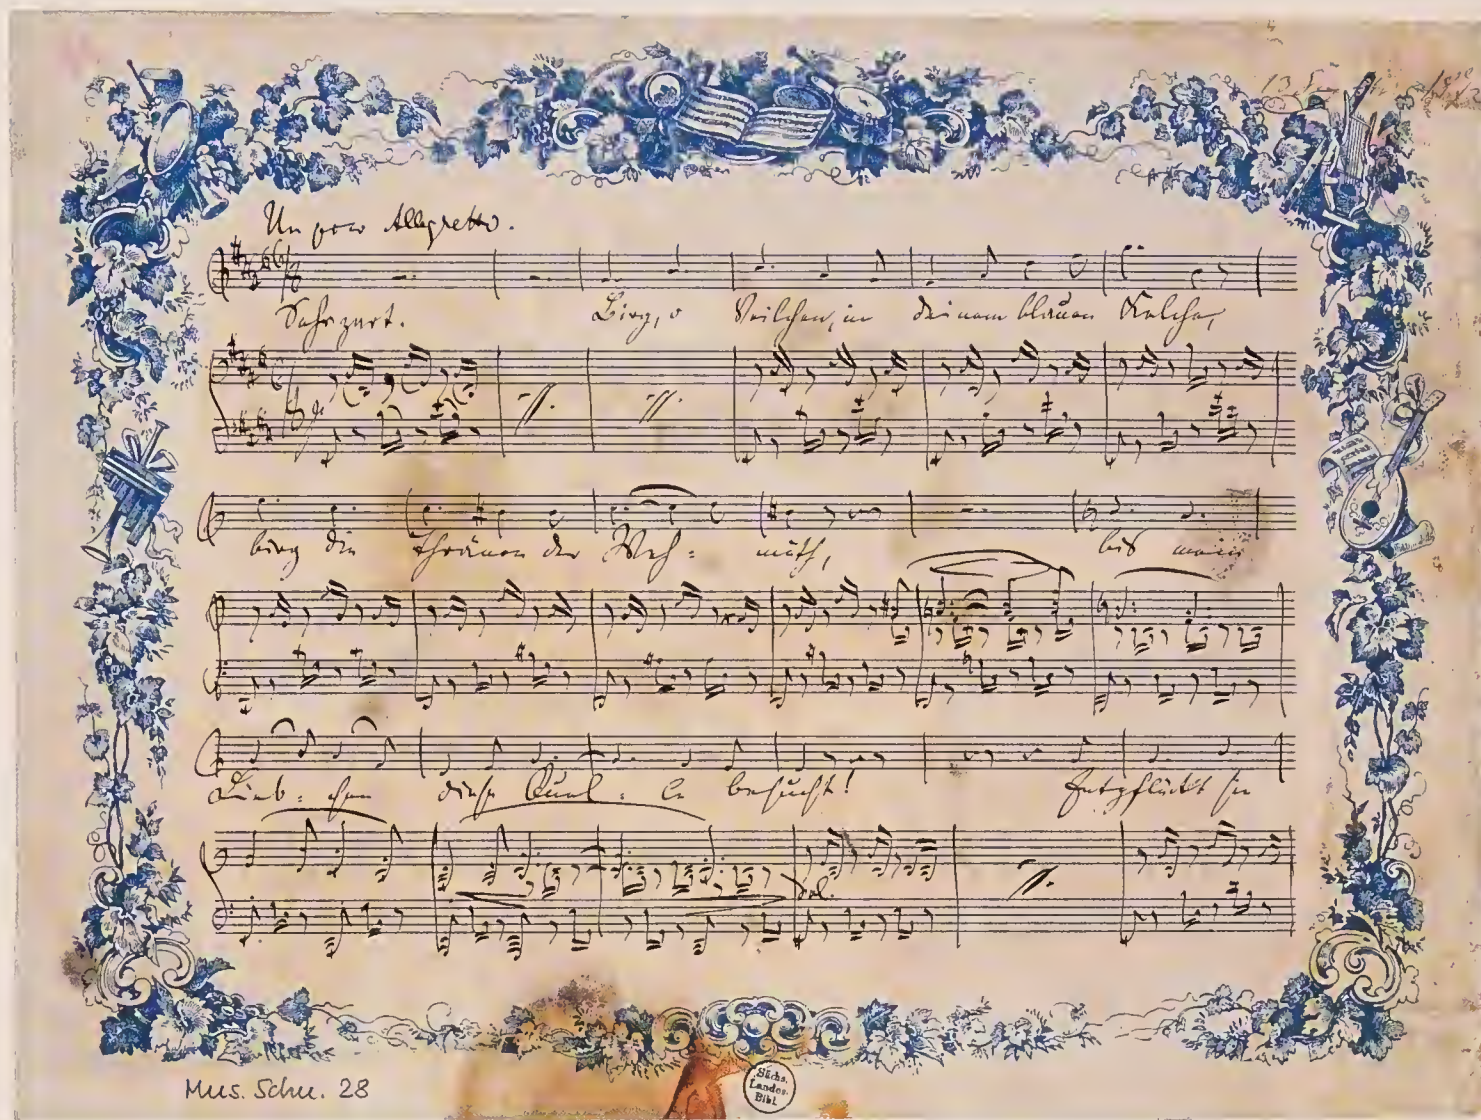 Un poco Allegretto.
Sehr zart. Birg, o Veilchen, in deinem blauen Kelche,
birg die Thränen der Weh - muth, bis mein
Lieb - chen diese Quel - le besucht! Entpflückt sie
Mus. Schu. 28
Sächs.
Landes-
Bibl.